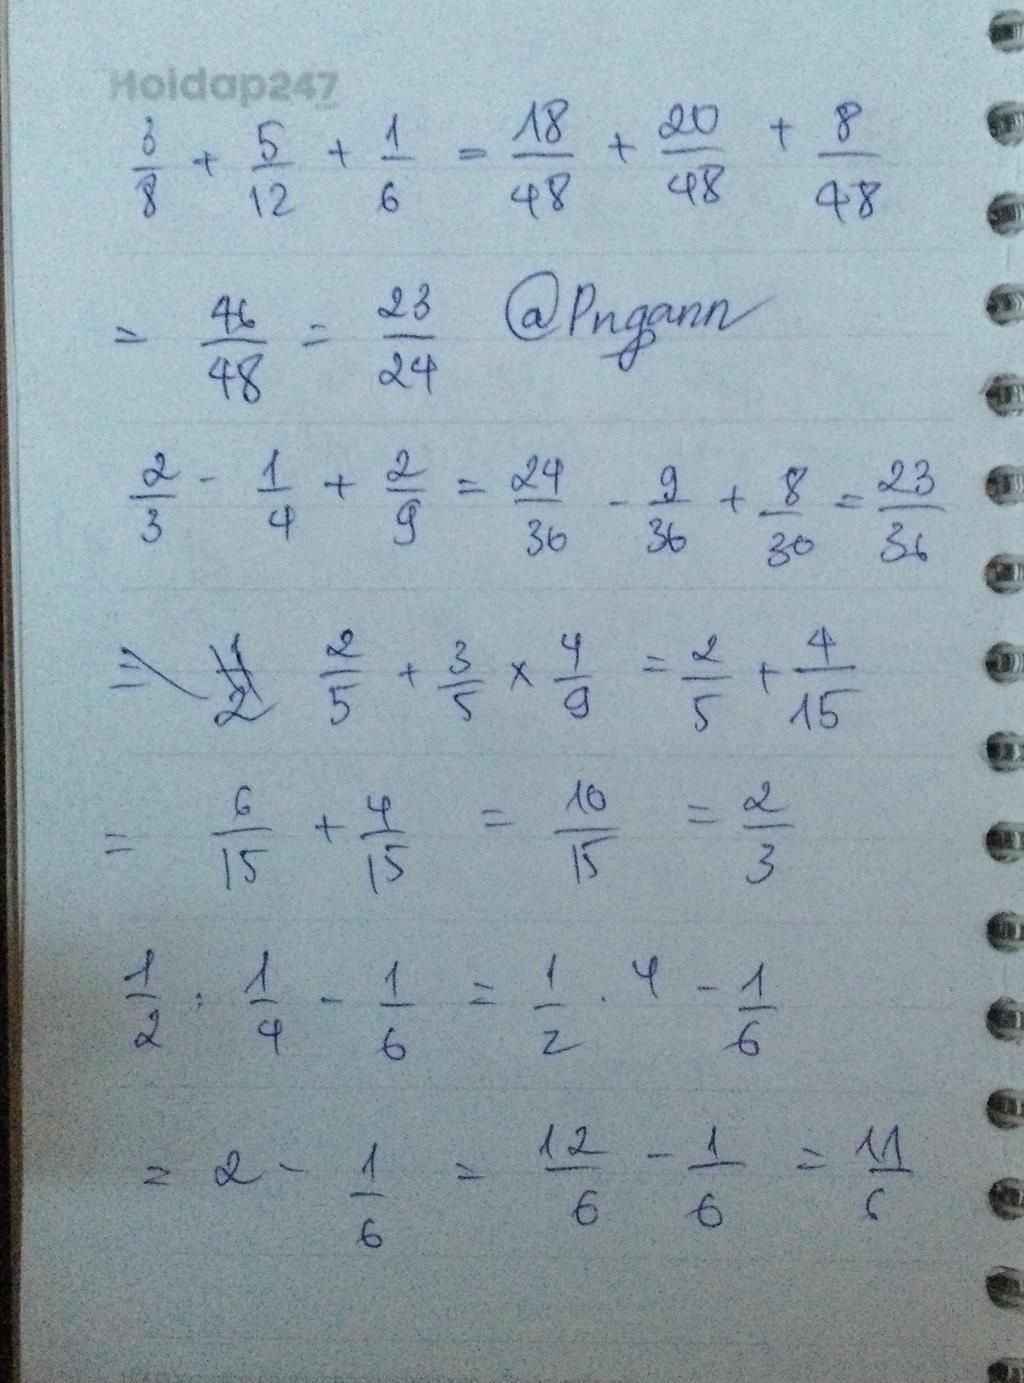 Hoidap247
3/8 + 5/12 + 1/6 = 18/48 + 20/48 + 8/48
= 46/48 = 23/24 @Pngann
2/3 - 1/4 + 2/9 = 24/36 - 9/36 + 8/36 = 23/36
= 1/2 2/5 + 3/5 × 4/9 = 2/5 + 4/15
= 6/15 + 4/15 = 10/15 = 2/3
1/2 : 1/4 - 1/6 = 1/2 . 4 - 1/6
= 2 - 1/6 = 12/6 - 1/6 = 11/6